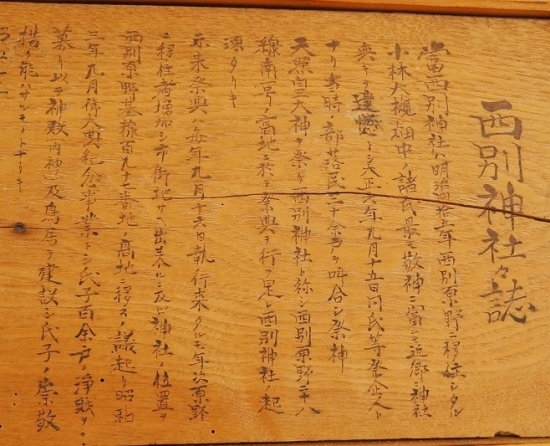 西別神社々誌
當西別神社ハ明治四拾三年西別原野ニ移住シタル
小林大槻畑中ノ諸氏最モ敬神ニ富ミ近郷ニ神社
無キヲ遺憾トシ大正六年九月十五日同氏等発企人ト
ナリ当時ノ部落民三十余戸ヲ叫合シ祭神
天照皇大神ヲ祭リ西別神社ト称シ西別原野二十八
線南一号ノ高地ニ於テ祭典ヲ行フ是レ西別神社ノ起
源タリキ
示来祭典ハ毎年九月十六日執行来タルモ年次原野
ニ移住者増加シ市街地サヘ出来ルニ及ビ神社ノ位置ヲ
西別原野基線百九十一番地ノ高地ニ移スノ議起リ昭和
三年九月御大典紀念事業トシ氏子百余戸ノ浄財ヲ
募リ以テ神殿内神及鳥居ヲ建設シ氏子ノ崇敬
措ク能ハザルモノトナリキ